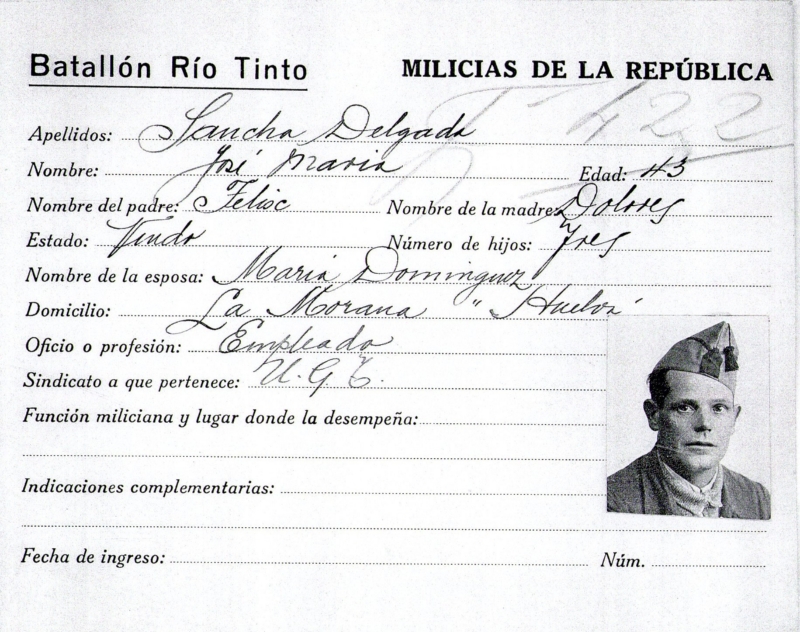 Batallón Río Tinto MILICIAS DE LA REPÚBLICA
Apellidos: Sancha Delgado
422
Nombre: José Maria Edad: 43
Nombre del padre: Felisc Nombre de la madre: Dolores
Estado: Viudo Número de hijos: Tres
Nombre de la esposa: Maria Dominguez
Domicilio: La Morana "Huelva"
Oficio o profesión: Empleado
Sindicato a que pertenece: U.G.T.
Función miliciana y lugar donde la desempeña:
Indicaciones complementarias:
Fecha de ingreso: Núm.